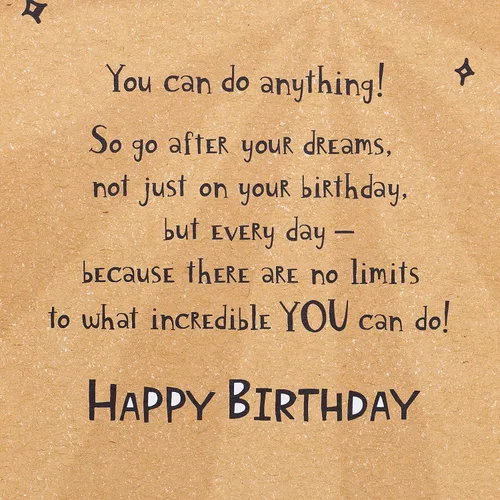 You can do anything!
So go after your dreams,
not just on your birthday,
but every day –
because there are no limits
to what incredible YOU can do!
HAPPY BIRTHDAY